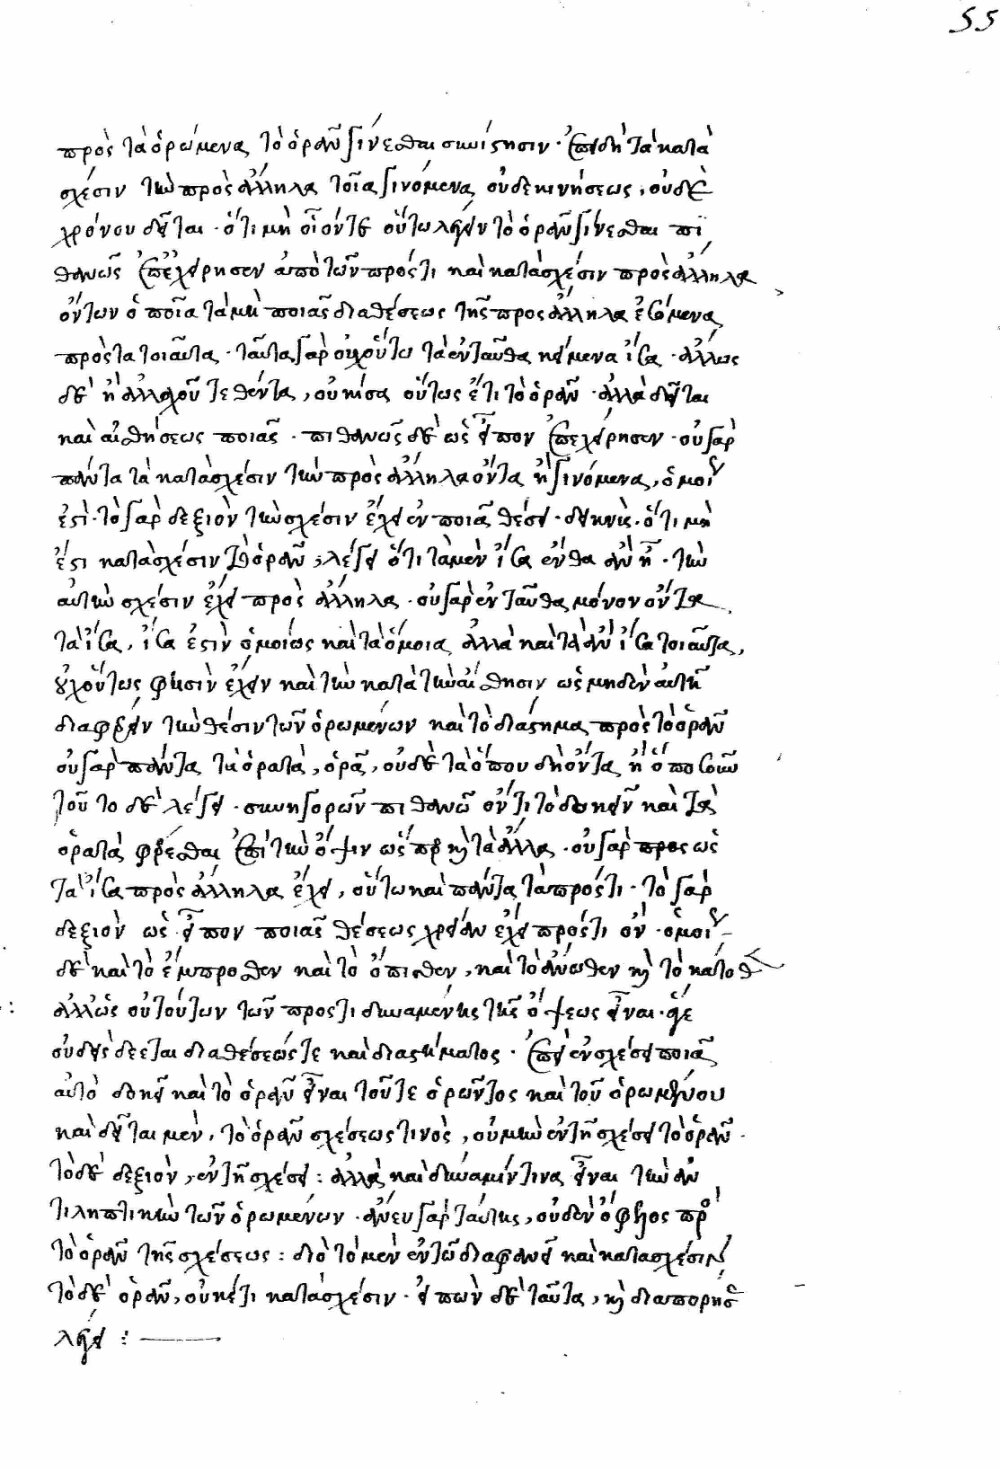 55
πρὸς τὰ ὁρώμενα, τὸ ὁρᾶν γίνεσθαι συνίστησιν· ἐπειδὴ τὰ κατὰ
σχέσιν τὴν πρὸς ἄλληλα τοῖα γινόμενα, οὐδὲ κινήσεως, οὐδὲ
χρόνου δεῖται· ὅτι μὴ οἷόν τε οὕτω λέγειν τὸ ὁρᾶν γίνεσθαι πι
θανῶς ἐπεχείρησεν ἀπὸ τῶν πρός τι καὶ κατὰ σχέσιν πρὸς ἄλληλα
ὄντων ὁποῖα τὰ μὴ ποιᾶς διαθέσεως τῆς πρὸς ἄλληλα ἐσόμενα,
πρὸς τὰ τοιαῦτα· ταῦτα γὰρ οὐχ οὕτω τὰ ἐνταῦθα κείμενα ἴσα· ἄλλως
δὲ ἢ ἀλλαχοῦ τεθέντα, οὐκ ἴσα οὕτως ἔτι τὸ ὁρᾶν· ἀλλὰ δεῖται
καὶ αἰσθήσεως ποιᾶς· πιθανῶς δὲ ὡς εἶπον ἐπεχείρησεν· οὐ γὰρ
πάντα τὰ κατὰ σχέσιν τὴν πρὸς ἄλληλα ὄντα ἢ γινόμενα, ὁμοῦ
ἐστί· τὸ γὰρ δεξιὸν τὴν σχέσιν ἔχει ἐν ποιᾷ θέσει· δεικνὺς· ὅτι μή
ἐστι κατὰ σχέσιν τὸ ὁρᾶν, λέγει ὅτι τὰ μὲν ἴσα ἔνθα ἂν ᾖ· τὴν
αὐτὴν σχέσιν ἔχει πρὸς ἄλληλα· οὐ γὰρ ἐνταῦθα μόνον ὄντα
τὰ ἴσα, ἴσα ἐστὶν ὁμοίως καὶ τὰ ὅμοια ἀλλὰ καὶ τὰ ἄνισα τοιαῦτα,
οὐχ οὕτως φησὶν ἔχειν καὶ τὴν κατὰ τὴν αἴσθησιν ὡς μηδὲν αὐτῇ
διαφέρειν τὴν θέσιν τῶν ὁρωμένων καὶ τὸ διάστημα πρὸς τὸ ὁρᾶν
οὐ γὰρ πάντα τὰ ὁρατὰ, ὁρᾷ, οὐδὲ τὰ ὅπου δὴ ὄντα, ἢ ὁποσοῦν
τοῦτο δὲ λέγει· συνηγορῶν πιθανῷ ὄντι τὸ δοκεῖν καὶ τὰ
ὁρατὰ φέρεσθαι ἐπὶ τὴν ὄψιν ὥσπερ καὶ τὰ ἄλλα· οὐ γὰρ προς ὡς
τὰ ἴσα πρὸς ἄλληλα ἔχει, οὕτω καὶ πάντα τὰ πρός τι· τὸ γὰρ
δεξιὸν ὡς εἶπον ποιᾶς θέσεως χρείαν ἔχει πρός τι ὄν· ὁμοῦ
δὲ καὶ τὸ ἔμπροσθεν καὶ τὸ ὄπισθεν, καὶ τὸ ἄνωθεν καὶ τὸ κάτωθεν
ἄλλως οὐ τούτων τῶν πρός τι δυναμένης τῆς ὄψεως εἶναι· ἥ γε
οὐδεὶς δέεται διαθέσεώς τε καὶ διαστήματος· ἐπεὶ ἐν σχέσει ποιᾷ
αὐτὸ δοκεῖ καὶ τὸ ὁρᾶν εἶναι τοῦ τε ὁρῶντος καὶ τοῦ ὁρωμένου
καὶ δεῖται μὲν, τὸ ὁρᾶν σχέσεως τινὸς, οὐ μὴν ἐν τῇ σχέσει τὸ ὁρᾶν·
τὸ δὲ δεξιὸν, ἐν τῇ σχέσει: ἀλλὰ καὶ δύναμίν τινα εἶναι τὴν ἀν
τιληπτικὴν τῶν ὁρωμένων· ἄνευ γὰρ ταύτης, οὐδὲν ὄφελος πρὸς
τὸ ὁρᾶν τῆς σχέσεως: διὸ τὸ μὲν ἐν τῷ διαφανεῖ καὶ κατὰ σχέσιν,
τὸ δὲ ὁρᾶν, οὐκέτι κατὰ σχέσιν· εἰπὼν δὲ ταῦτα, καὶ διαπορήσας
λέγει: